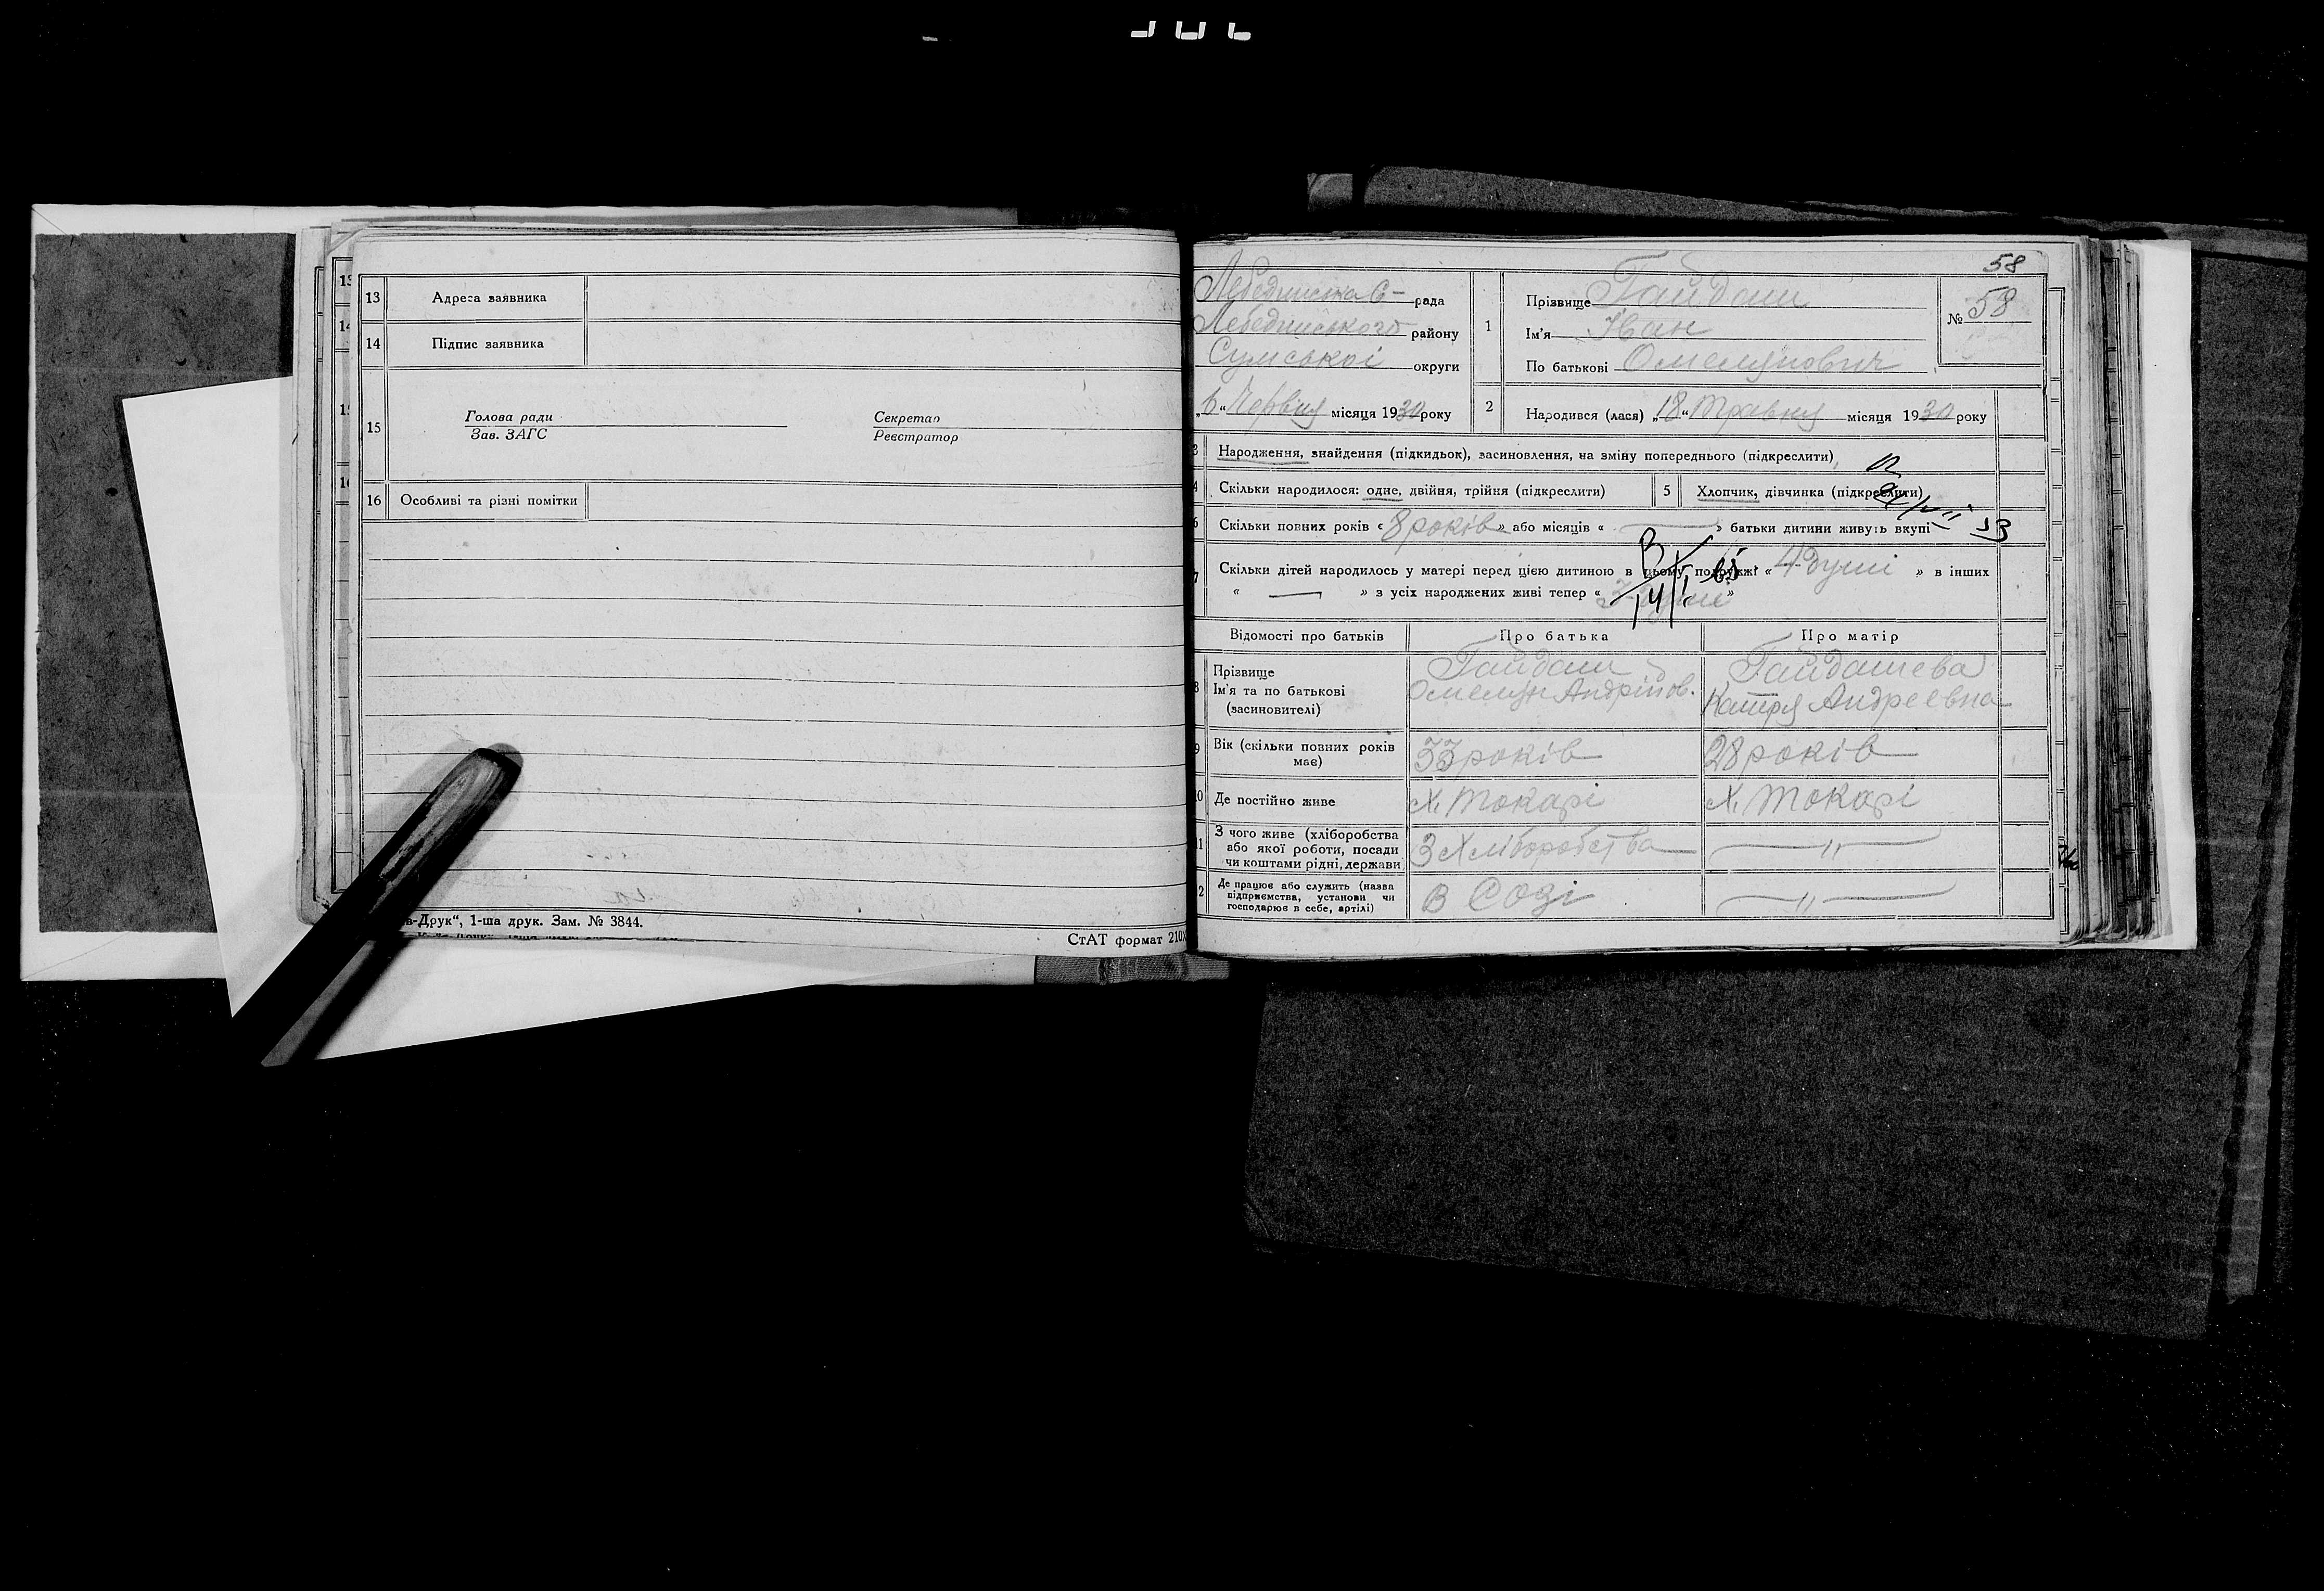 13 Адреса заявника
14 Підпис заявника
15 Голова ради Секретар
Зав. ЗАГС Реєстратор
16 Особливі та різні помітки
в-Друк“, 1-ша друк. Зам. № 3844.
СтАТ формат 210
58
Лебединська С-рада
Лебединського району
Сумської округи
„6“ Червня місяця 1930 року
1 Прізвище Гайдаш
Ім'я Іван
По батькові Омелянович
№ 58
2 Народився (лася) „18“ Травня місяця 1930 року
3 Народження, знайдення (підкидьок), засиновлення, на зміну попереднього (підкреслити)
4 Скільки народилося: одне, двійня, трійня (підкреслити) 5 Хлопчик, дівчинка (підкреслити)
6 Скільки повних років «8 років» або місяців « — » батьки дитини живуть вкупі
7 Скільки дітей народилось у матері перед цією дитиною в цьому подружжі «4 душі» в інших
« — » з усіх народжених живі тепер « »
Відомості про батьків Про батька Про матір
8 Прізвище
Ім'я та по батькові
(засиновителі)
Гайдаш
Омелян Андрійов.
Гайдашева
Катря Андреевна
9 Вік (скільки повних років
має)
33 років
28 років
10 Де постійно живе Х. Токарі Х. Токарі
11 З чого живе (хліборобства
або якої роботи, посади
чи коштами рідні, держави
З Хліборобства — „ —
12 Де працює або служить (назва
підприємства, установи чи
господарює в себе, артілі)
В Созі — „ —